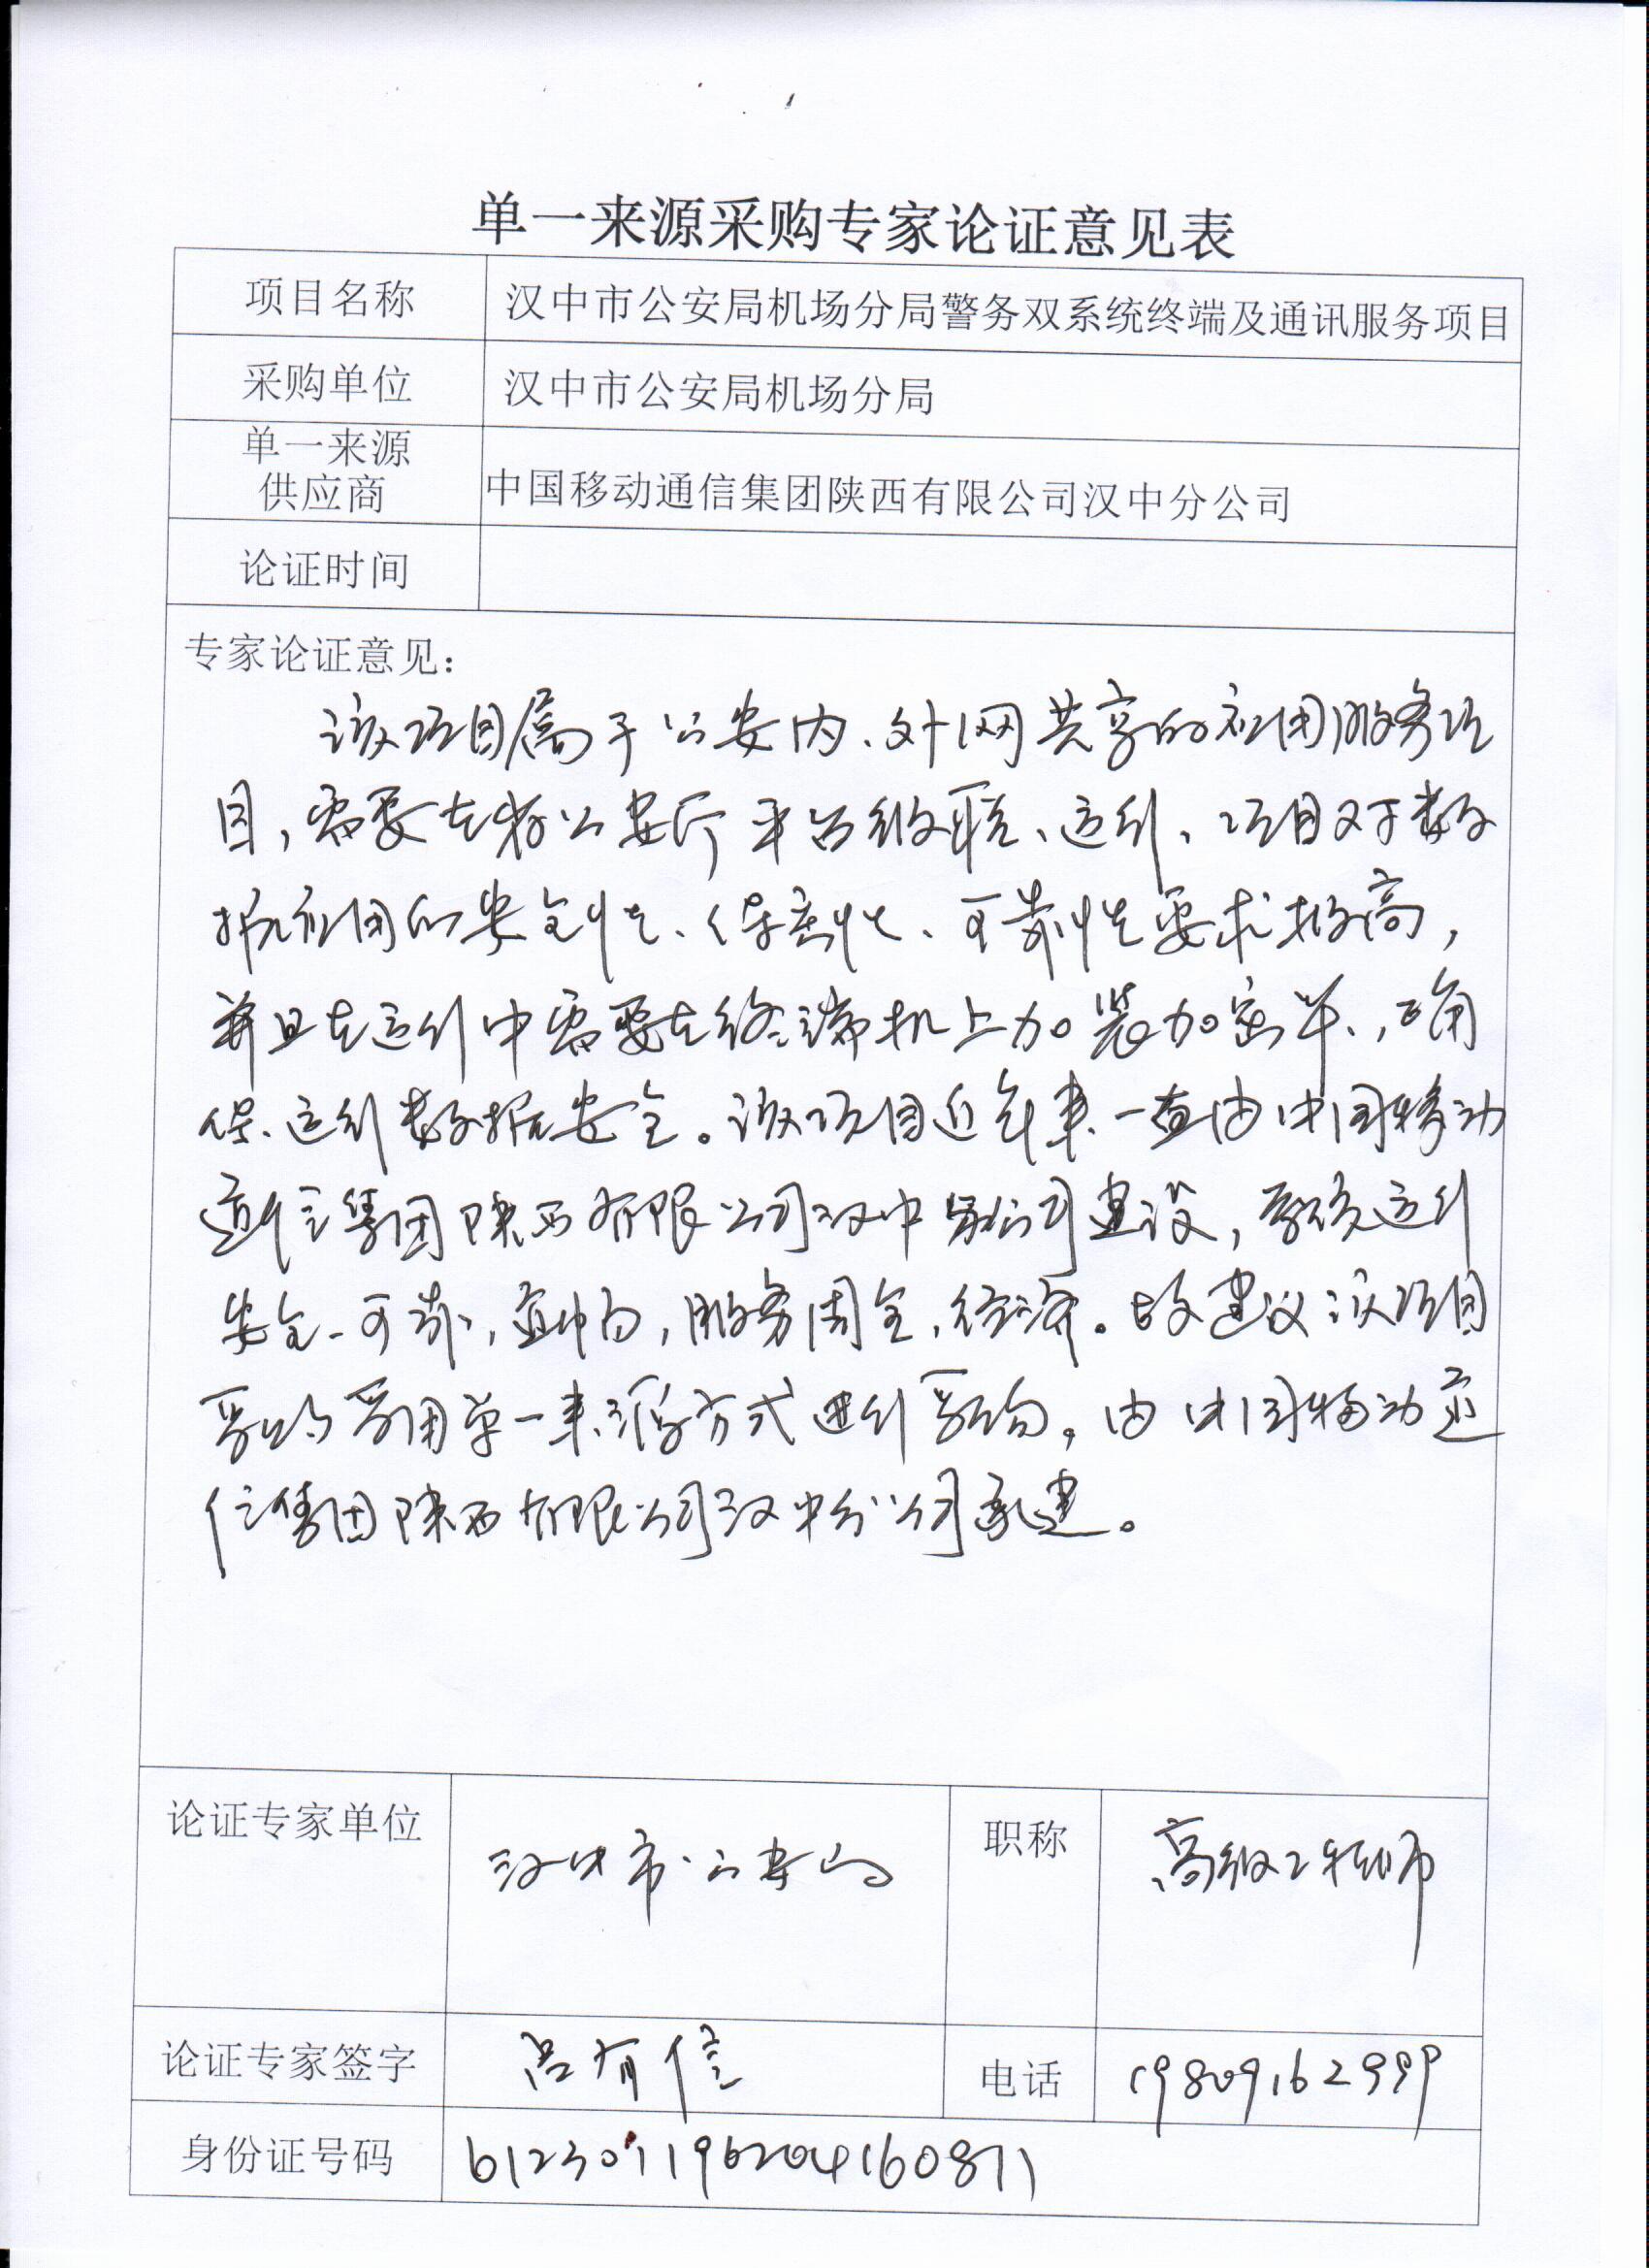 单一来源采购专家论证意见表
项目名称 汉中市公安局机场分局警务双系统终端及通讯服务项目
采购单位 汉中市公安局机场分局
单一来源
供应商 中国移动通信集团陕西有限公司汉中分公司
论证时间
专家论证意见：
该项目属于公安内、外网共享的应用服务项
目，需要在省公安厅平台级联、运行、项目对于数
据应用的安全性、保密性、可靠性要求极高，
并且在运行中需要在终端机上加装加密卡，确
保运行数据安全。该项目近年来一直由中国移动
通信集团陕西有限公司汉中分公司建设，系统运行
安全、可靠，流畅，服务周全，经济。故建议该项目
采购采用单一来源方式进行采购，由中国移动通
信集团陕西有限公司汉中分公司承建。
论证专家单位 汉中市公安局 职称 高级工程师
论证专家签字 吕有信 电话 19809162999
身份证号码